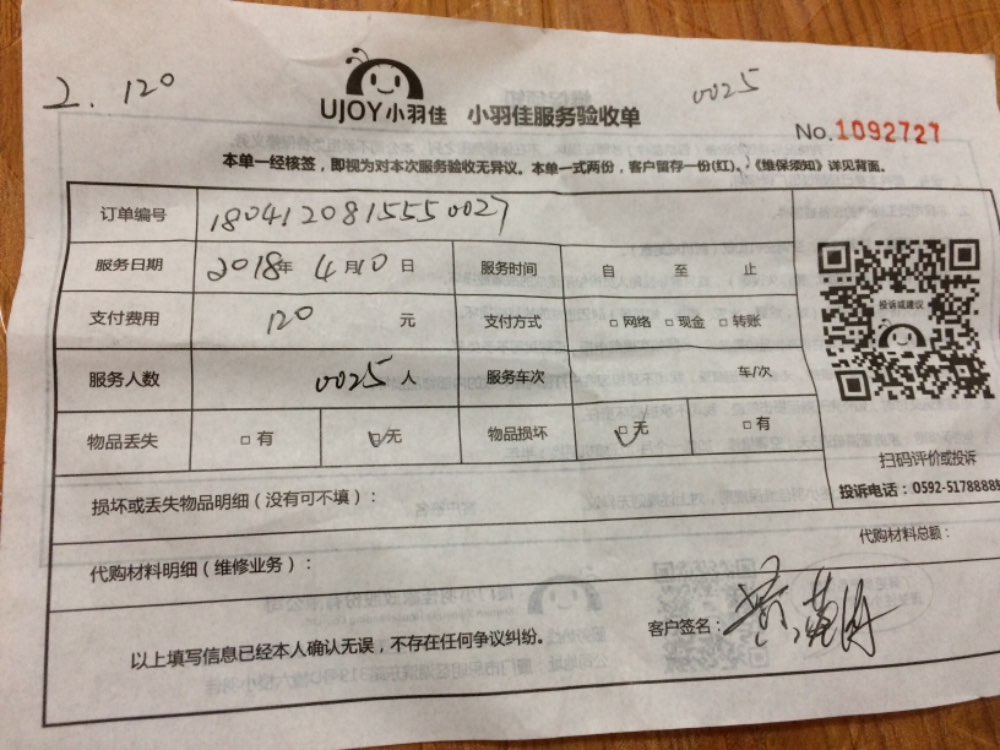 2. 120
0025
UJOY小羽佳 小羽佳服务验收单
No.1092727
本单一经核签，即视为对本次服务验收无异议。本单一式两份，客户留存一份(红)。《维保须知》详见背面。
订单编号 1804120815550027
服务日期 2018年 4月10日 服务时间 自 至 止
支付费用 120 元 支付方式 □网络 □现金 □转账
投诉或建议
服务人数 0025人 服务车次 车/次
物品丢失 □有 □无 物品损坏 □无 □有
扫码评价或投诉
损坏或丢失物品明细（没有可不填）：
投诉电话：0592-5178888
代购材料总额：
代购材料明细（维修业务）：
客户签名：
以上填写信息已经本人确认无误，不存在任何争议纠纷。